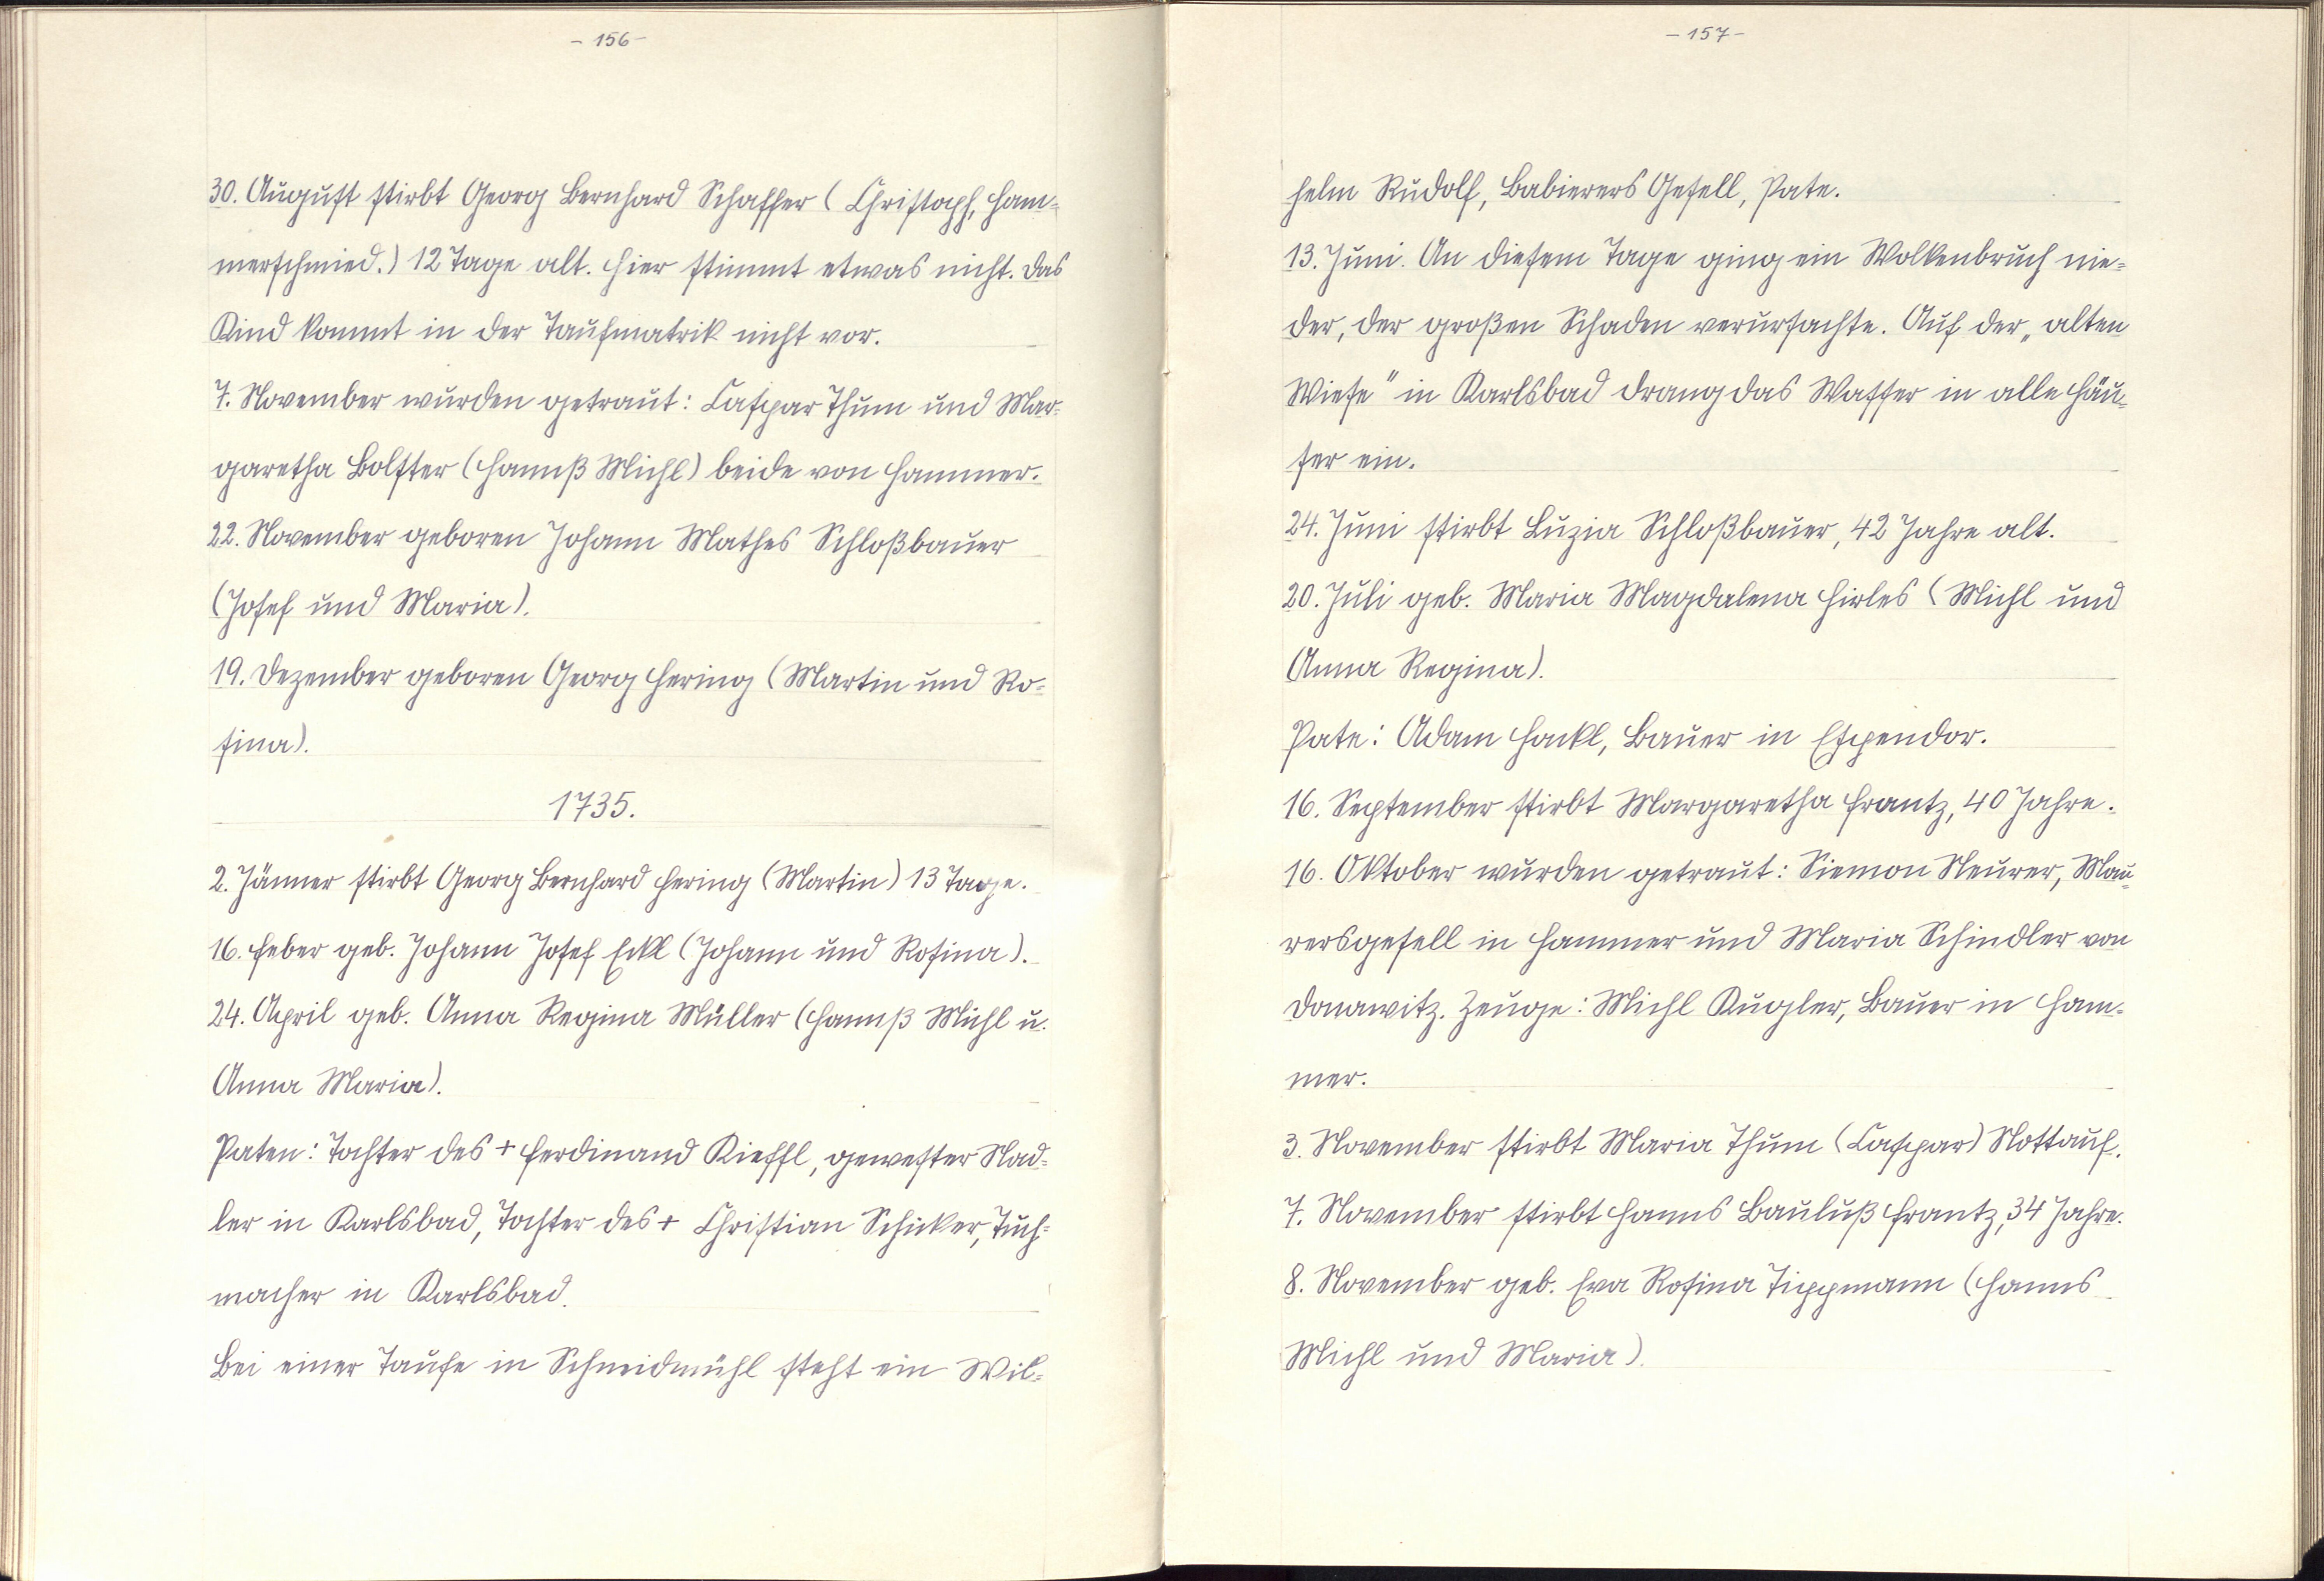 - 156 -
30. August stirbt Georg Bernhard Schaffer (Christoph, Ham=
merschmied.) 12 Tage alt. Hier stimmt etwas nicht. Das
Kind kommt in der Taufmatrik nicht vor.
7. November wurden getraut: Caspar Thum und Mar=
garetha Bolster (Hannß Michl) beide von Hammer.
22. November geboren Johann Mathes Schloßbauer
(Josef und Maria).
19. Dezember geboren Georg Hering (Martin und Ro=
sina).
1735.
2. Jänner stirbt Georg Bernhard Hering (Martin) 13 Tage.
16. Feber geb. Johann Josef Eckl (Johann und Rosina).
24. April geb. Anna Regina Müller (Hannß Michl u.
Anna Maria).
Paten: Tochter des + Ferdinand Kieffl, gewester Nad=
ler in Karlsbad, Tochter des + Christian Schicker, Tuch=
macher in Karlsbad.
Bei einer Taufe in Schneidmühl steht ein Wil=
- 157 -
helm Rudolf, Babierers Gesell, Pate.
13. Juni. An diesem Tage ging ein Wolkenbruch nie=
der, der großen Schaden verursachte. Auf der „alten
Wiese" in Karlsbad drang das Wasser in alle Häu=
ser ein.
24. Juni stirbt Luzia Schloßbauer, 42 Jahre alt.
20. Juli geb. Maria Magdalena Hirles (Michl und
Anna Regina).
Pate: Adam Hackl, Bauer in Espendor.
16. September stirbt Margaretha Frantz, 40 Jahre.
16. Oktober wurden getraut: Siemon Neurer, Mau=
rersgesell in Hammer und Maria Schindler von
Donawitz. Zeuge: Michl Kugler, Bauer in Ham=
mer.
3. November stirbt Maria Thum (Caspar) Nottauf.
7. November stirbt Hanns Bauluß Frantz, 34 Jahre.
8. November geb. Eva Rosina Tippmann (Hanns
Michl und Maria).